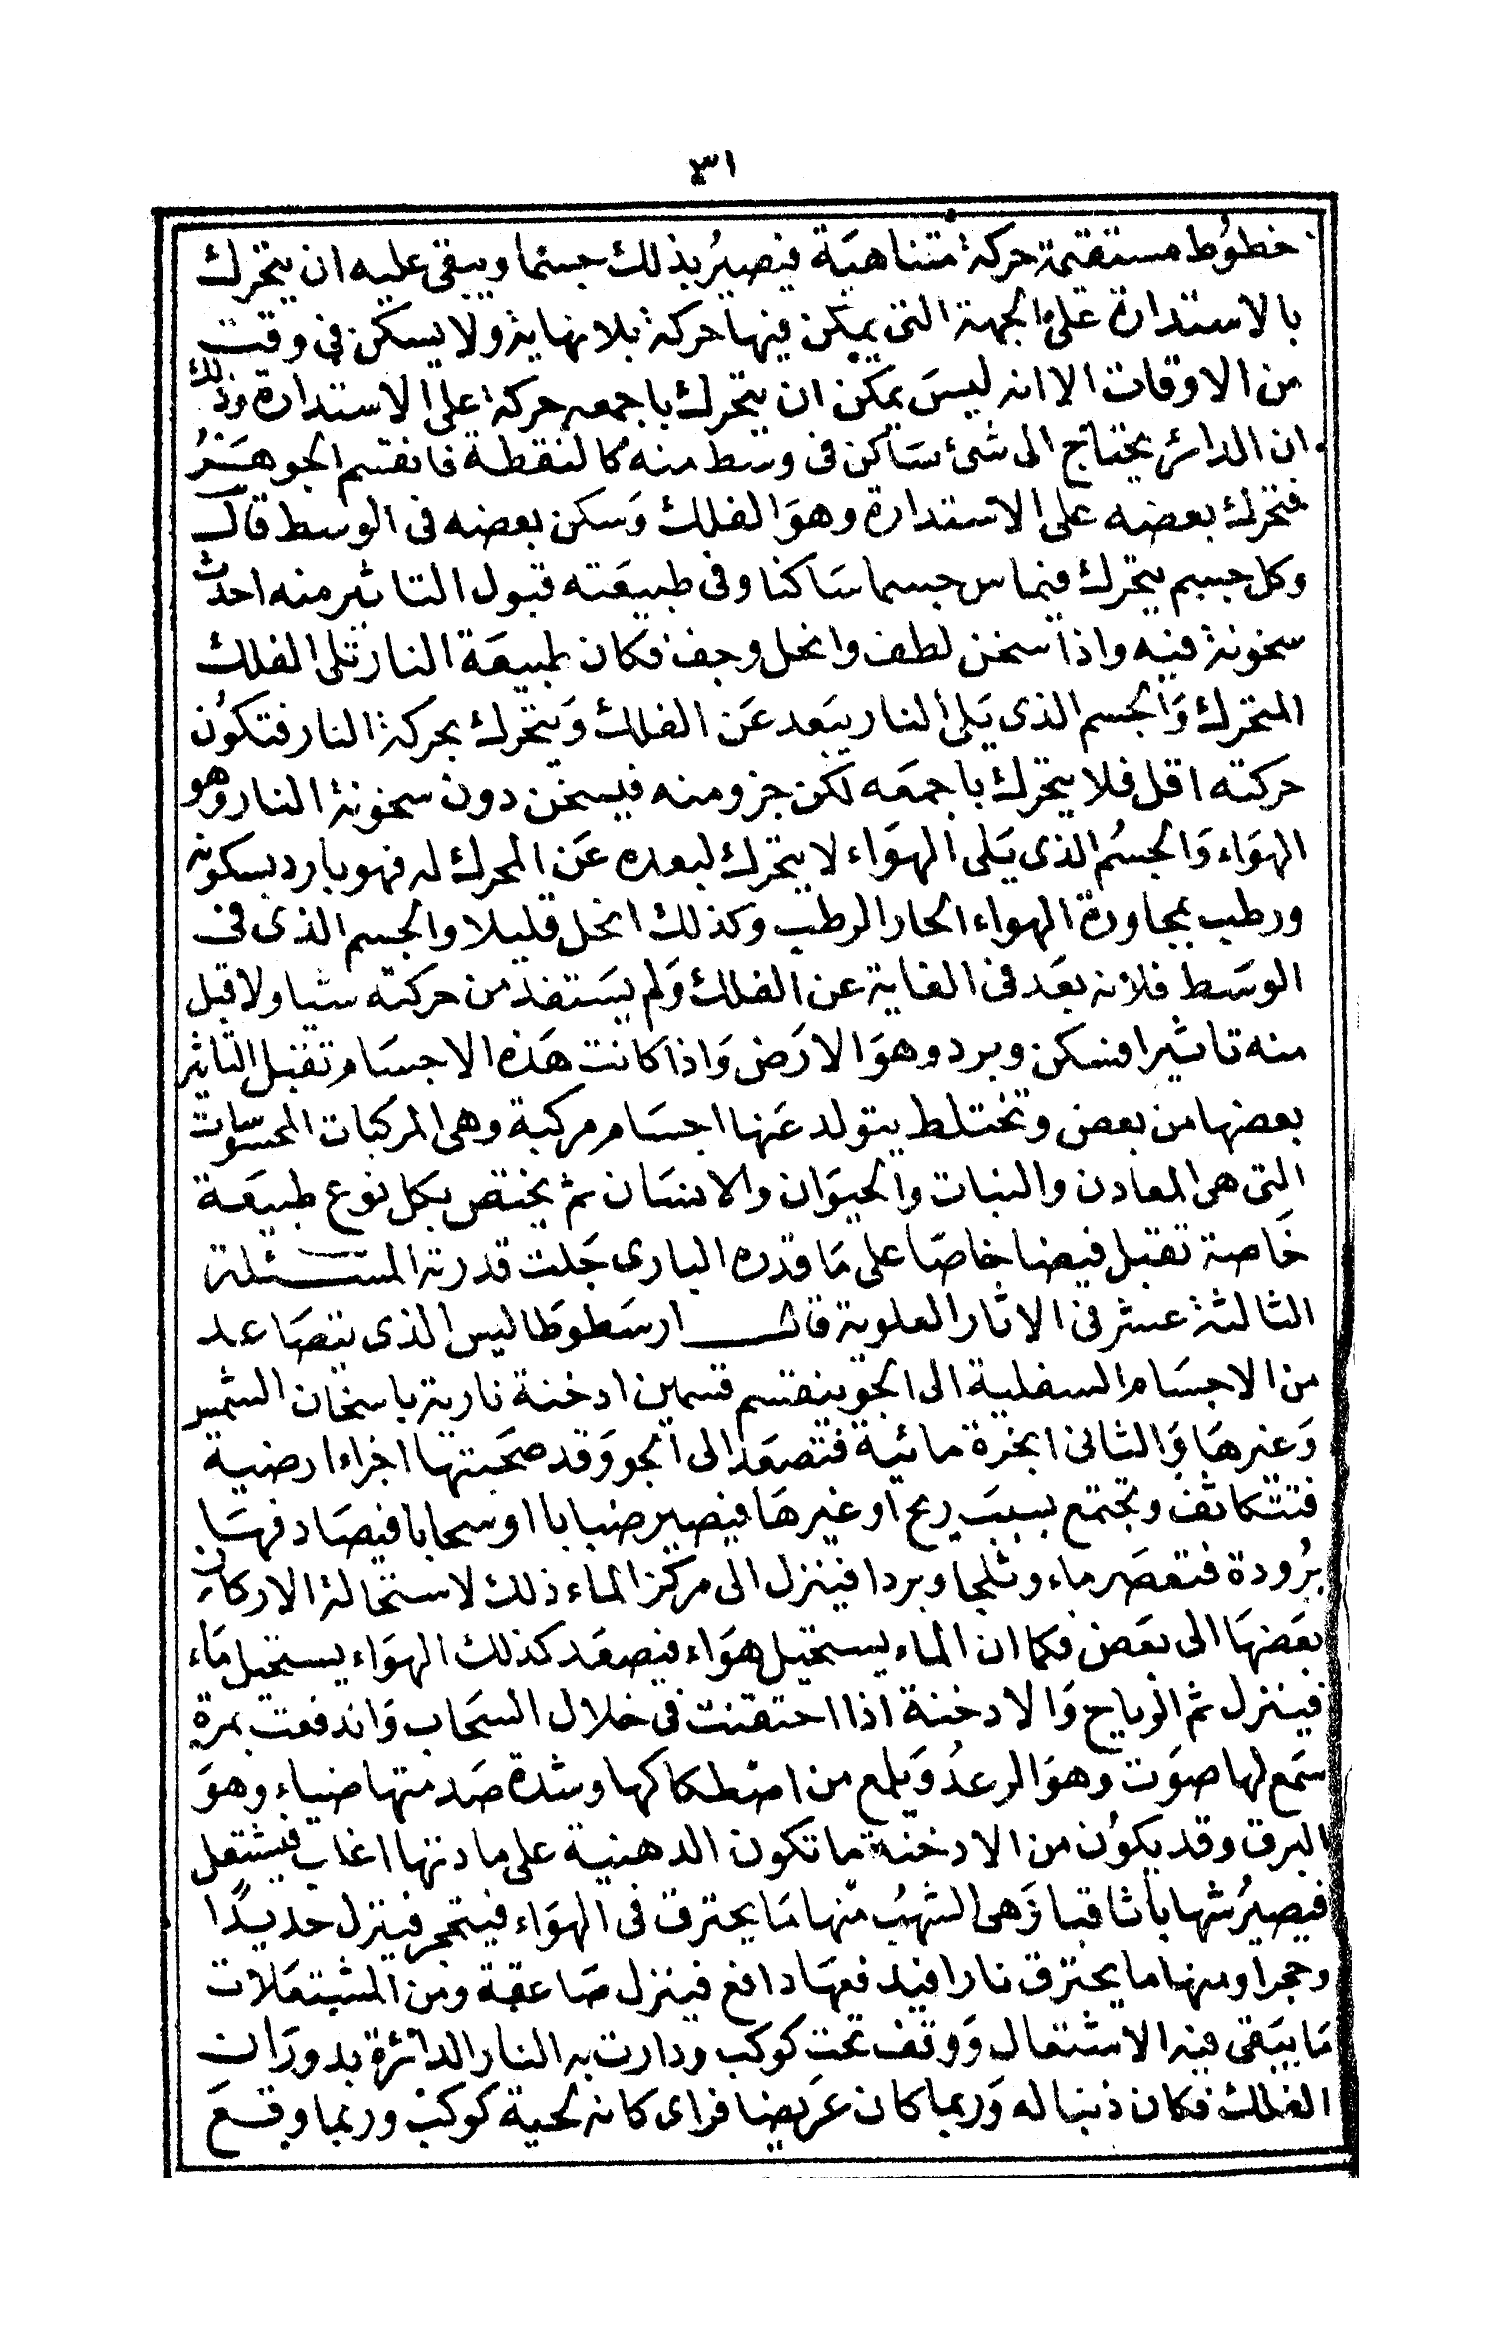 ٣١
خطوط مستقيمة حركة متناهية فيصيرُ بذلك جسما ويبقى عليه ان يتحرك
بالاستدارة على الجهة التى يمكن فيها حركة بلا نهاية ولا يسكن فى وقت
من الاوقات الا انه ليسَ يمكن ان يتحرك باجمعه حركة على الاستدارة وذلك
ان الدائر يحتاج الى شئ سَاكن فى وسط منه كالنقطة فانقسم الجوهَرُ
فتحرك بعضه على الاستدارة وهوَ الفلك وَسكن بعضه فى الوسط قال
وكل جسم يتحرك فيماس جسما سَاكنا وفى طبيعَته قبول التاثير منه احدث
سخونة فيه واذا سخن لطف وانحل وجف فكان طبيعَة النار تلى الفلك
المتحرك وَالجسم الذى يَلى النار يبَعد عَن الفلك وَيتحرك بحركة النار فتكوُن
حركته اقل فلا يتحرك باجمعَه لكن جزو منه فيسخن دون سخونة النار وهو
الهوَاء وَالجسُم الذى يَلى الهوَاء لا يتحرك لبعده عَن المحرك له فهو بارد بسكونه
ورطب بمجاورة الهواء الحار الرطب وكذلك انحل قليلا والجسم الذى فى
الوسَط فلانه بعَد فى الغاية عن الفلك وَلم يسَتفد من حركته شيا ولا قبل
منه تاثيرا فسكن وبرد وهوَ الارَض وَاذا كانت هَذه الاجسَام تقبل التاثير
بعضها من بعض وتختلط يتولد عَنها اجسَام مركبة وهى المركبات المحسوسات
التى هى المعادن والنبات والحيوَان والانسَان ثم يختص بكل نوع طبيعَة
خَاصة تقبل فيضا خاصَا على مَا قدره البارى جَلت قدرته المسئلة
الثالثة عشر فى الاثار العلوية قال ارسَطوطَاليس الذى يتصَاعد
من الاجسَام السفلية الى الجو ينقسم قسمين ادخنة نارية باسخان الشمس
وَغيرهَا وَالثانى ابخرة مائية فتصعَد الى الجو وَقد صحَبتها اجزاء ارضية
فتتكاثف وتجتمع بسببَ ريح او غيرهَا فيصير ضبابا او سحابا فيصَادفهَا
بُرودة فتعصَر ماء وثلجا وبردا فينزل الى مركز الماء ذلك لاستحالة الاركان
بعَضهَا الى بعَض فكما ان الماء يستحيل هوَاء فيصعَد كذلك الهوَاء يستحيل مَاء
فينزل ثم الرياح وَالادخنة اذا احتقنت فى خلال السَحاب وَاندفعت بمرة
سَمع لها صوَت وهوَ الرعدُ وَيلمع من اصطكاكها وشدة صَدمتها ضياء وهوَ
البرق وقد يكوُن من الادخنة ما تكون الدهنية على مادتها اغاب فيشتعل
فيصيرُ شهابا ثاقبا وَهى الشهبُ منها مَا يحترق فى الهوَاء فيتحجر فينزل حديدًا
وحجرا ومنها ما يحترق نارا فيدفعهَا دافع فينزل صَاعقة ومن المشتعَلات
مَا يبَقى فيه الاشتعال وَوقف تحت كوكب ودارت به النار الدائرة بدورَان
الفلك فكان ذنبا له وَربما كان عَريضا فراى كانه لحية كوكب وربما وقعَ